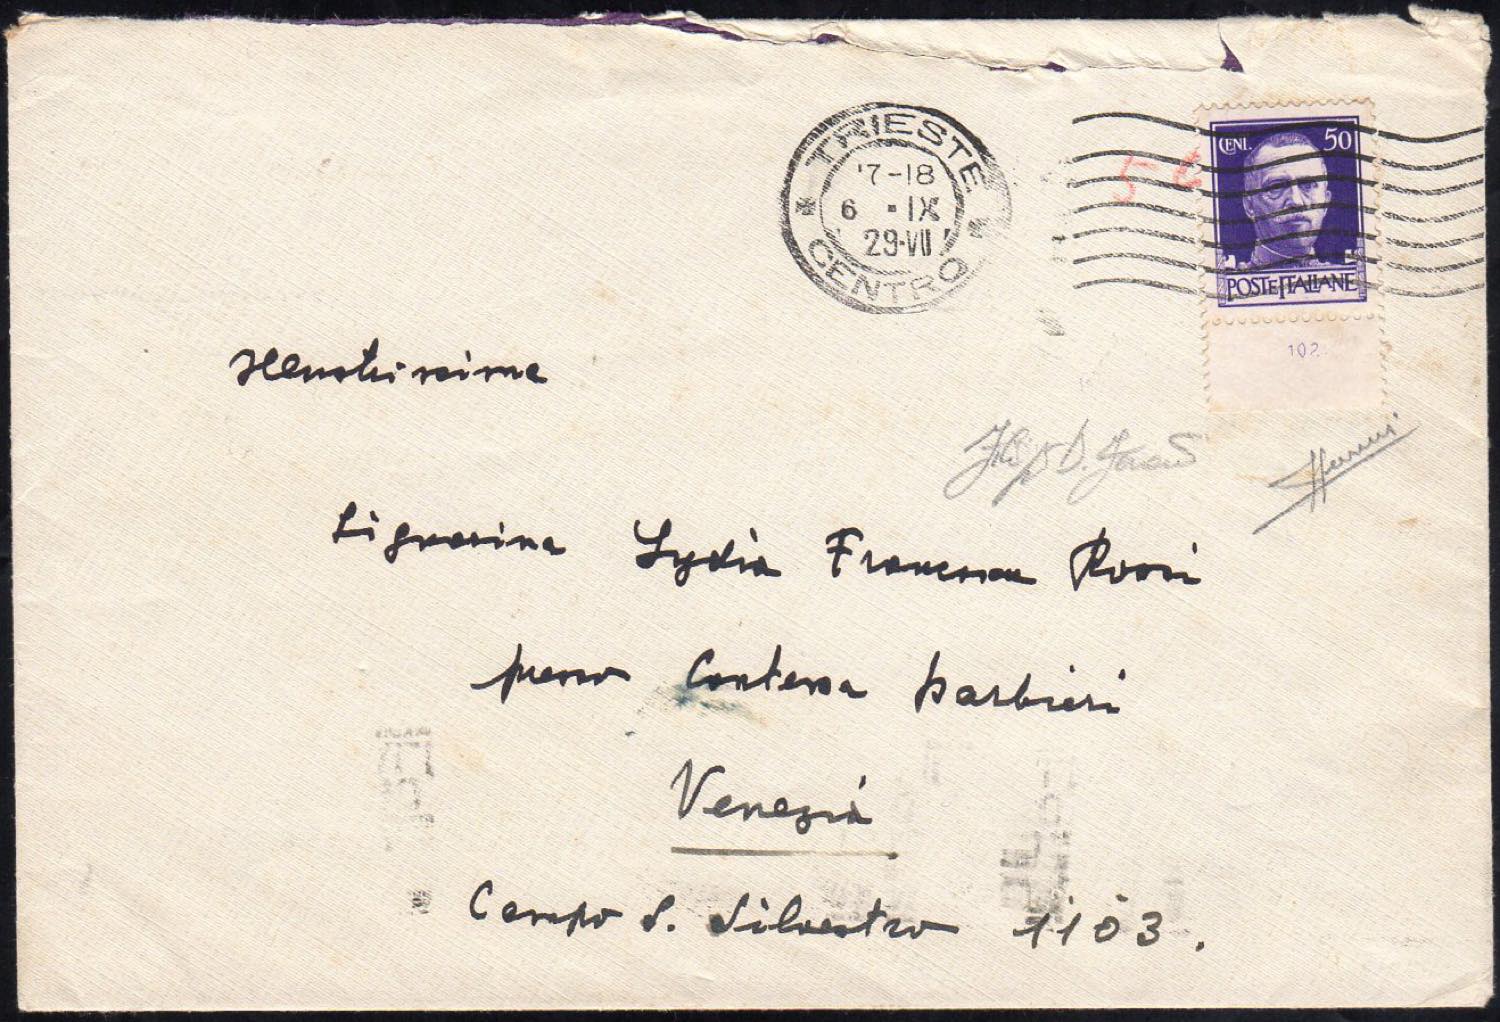 TRIESTE
17-18
6 - IX
29-VII
CENTRO
CENT. 50
POSTE ITALIANE
102
Illustrissima
Signorina Lydia Francesca Rossi
presso Contessa Barbieri
Venezia
Campo S. Silvestro 1103.